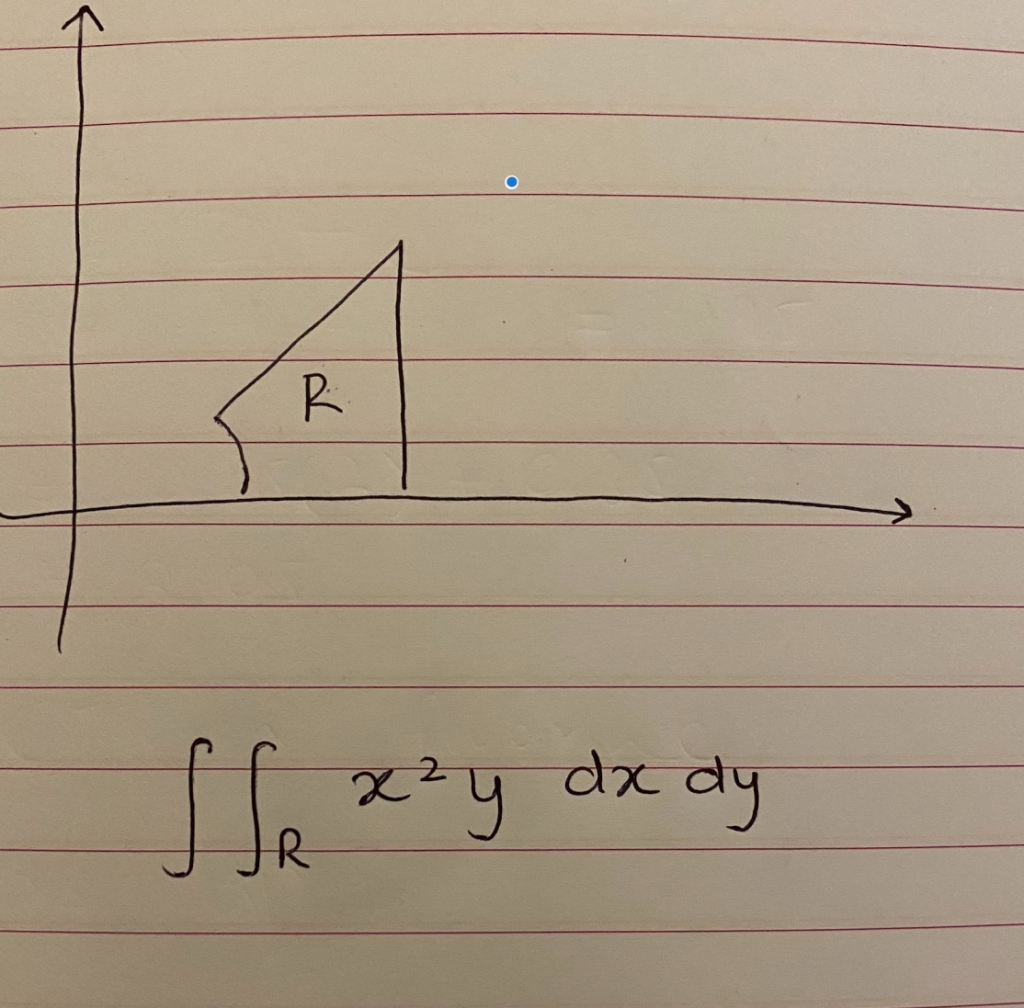 R
∫∫_R x² y dx dy